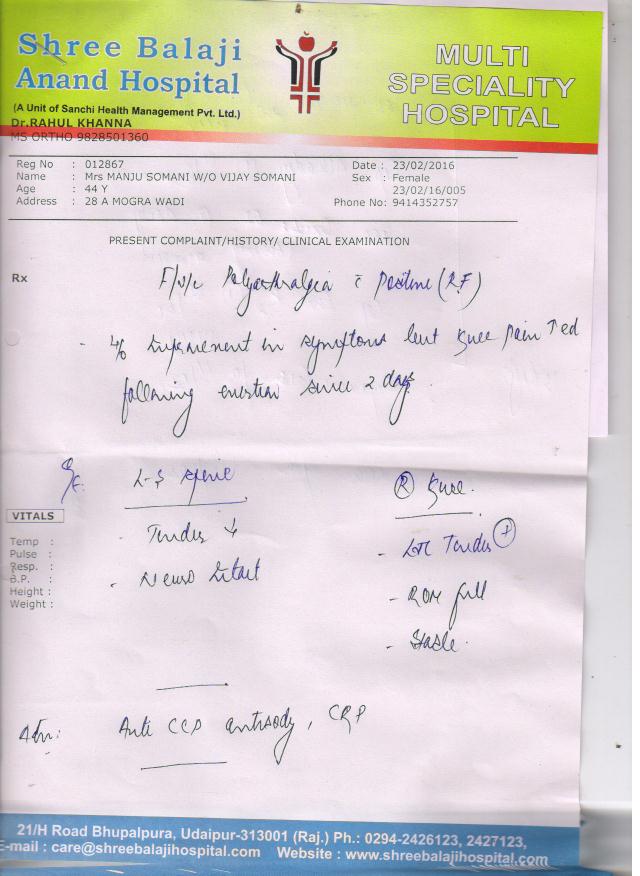 Shree Balaji
Anand Hospital
(A Unit of Sanchi Health Management Pvt. Ltd.)
Dr.RAHUL KHANNA
MS ORTHO 9828501360
MULTI
SPECIALITY
HOSPITAL
Reg No : 012867 Date : 23/02/2016
Name : Mrs MANJU SOMANI W/O VIJAY SOMANI Sex : Female
Age : 44 Y 23/02/16/005
Address : 28 A MOGRA WADI Phone No: 9414352757
PRESENT COMPLAINT/HISTORY/ CLINICAL EXAMINATION
Rx
F/U/C Polyarthralgia c̄ positive (RF)
- H/o improvement in symptoms but knee pain ↑ed
following exertion since 2 days.
O/E. L-S spine
- Tender ↓
- Neuro intact
(R) knee.
- Tender (+)
- ROM full
- Stable.
VITALS
Temp :
Pulse :
Resp. :
B.P. :
Height :
Weight :
Adv: Anti CCP antibody, CRP
21/H Road Bhupalpura, Udaipur-313001 (Raj.) Ph.: 0294-2426123, 2427123,
E-mail : care@shreebalajihospital.com Website : www.shreebalajihospital.com